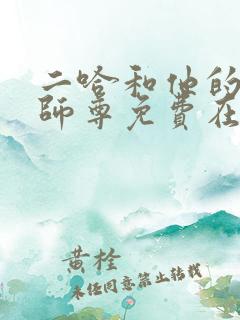 二哈和他的
師尊免費在
黄栓
未经同意禁止转载